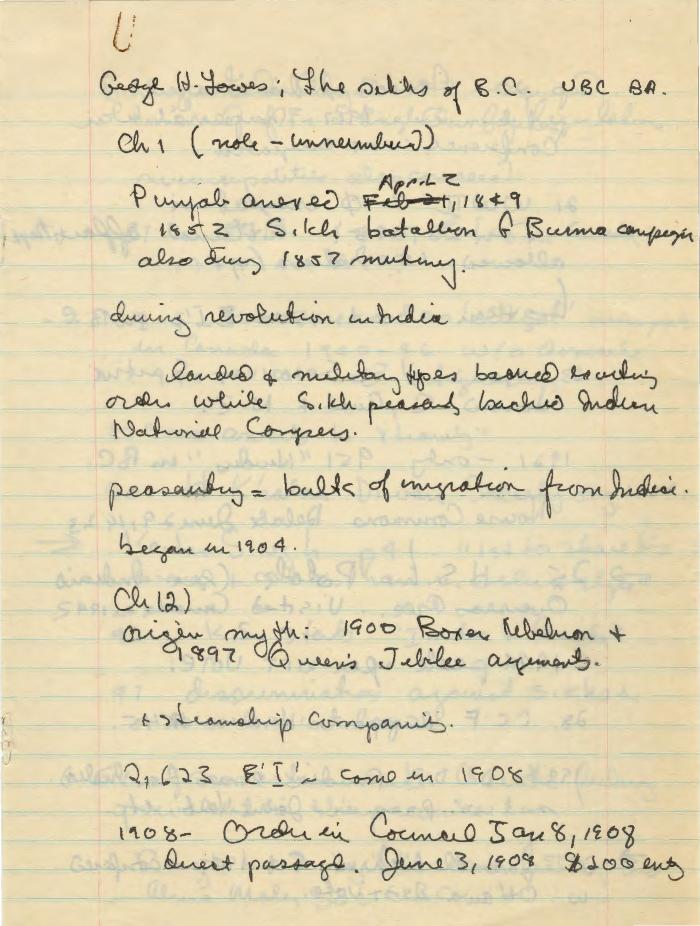 George H. Lowes; The sikhs of B.C. UBC BA.
Ch 1 (note - unnumbered)
April 2
Punjab anexed Feb 21, 1849
1852 Sikh batallion f Burma campaign
also during 1857 mutiny.
during revolution in India
landed & military types backed existing
order while Sikh peasants backed Indian
National Congress.
peasantry = bulk of migration from India.
began in 1904.
Ch (2)
origin myth: 1900 Boxer Rebelion &
1897 Queen's Jebilee arguments.
+ steamship companies.
2,623 E'I' came in 1908
1908- Order in Council Jan 8, 1908
direct passage. June 3, 1908 $200 entry